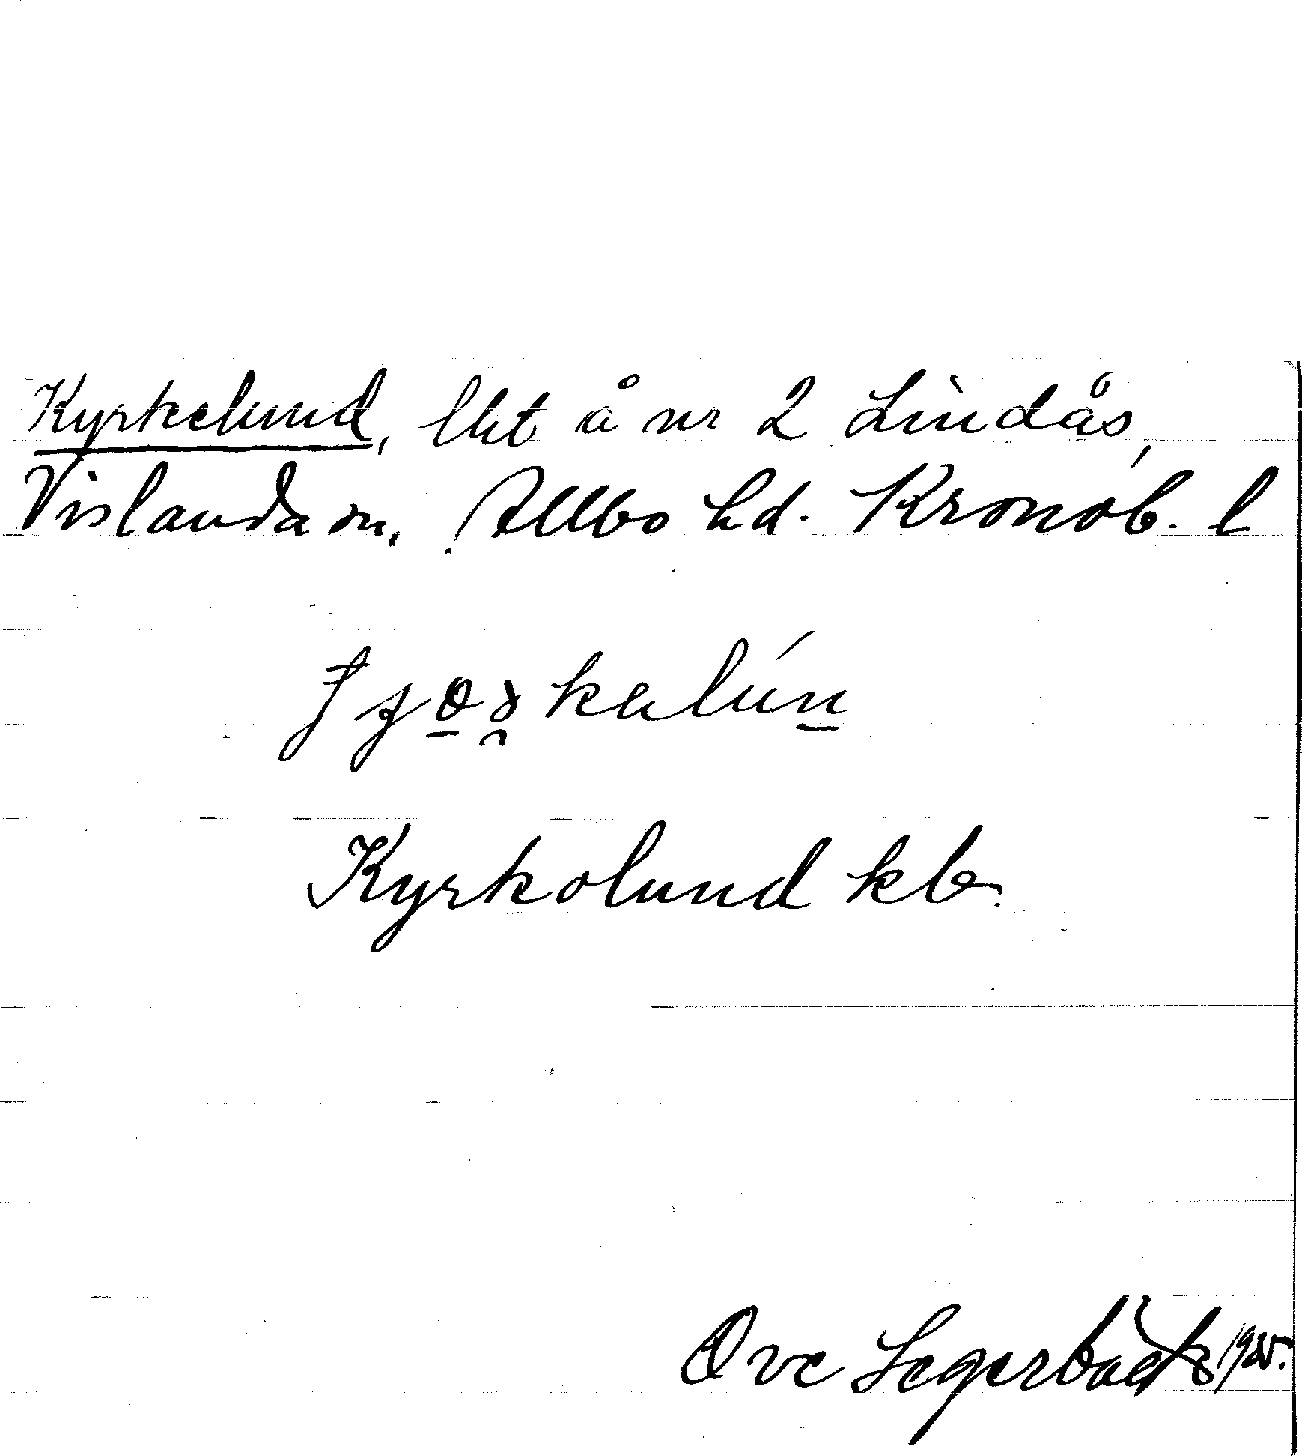 Kyrkelund, lht å nr 2 Lindås,
Vislanda sn. Allbo hd. Kronob. l
Kyrkolund kb.
Ove Segerbäck